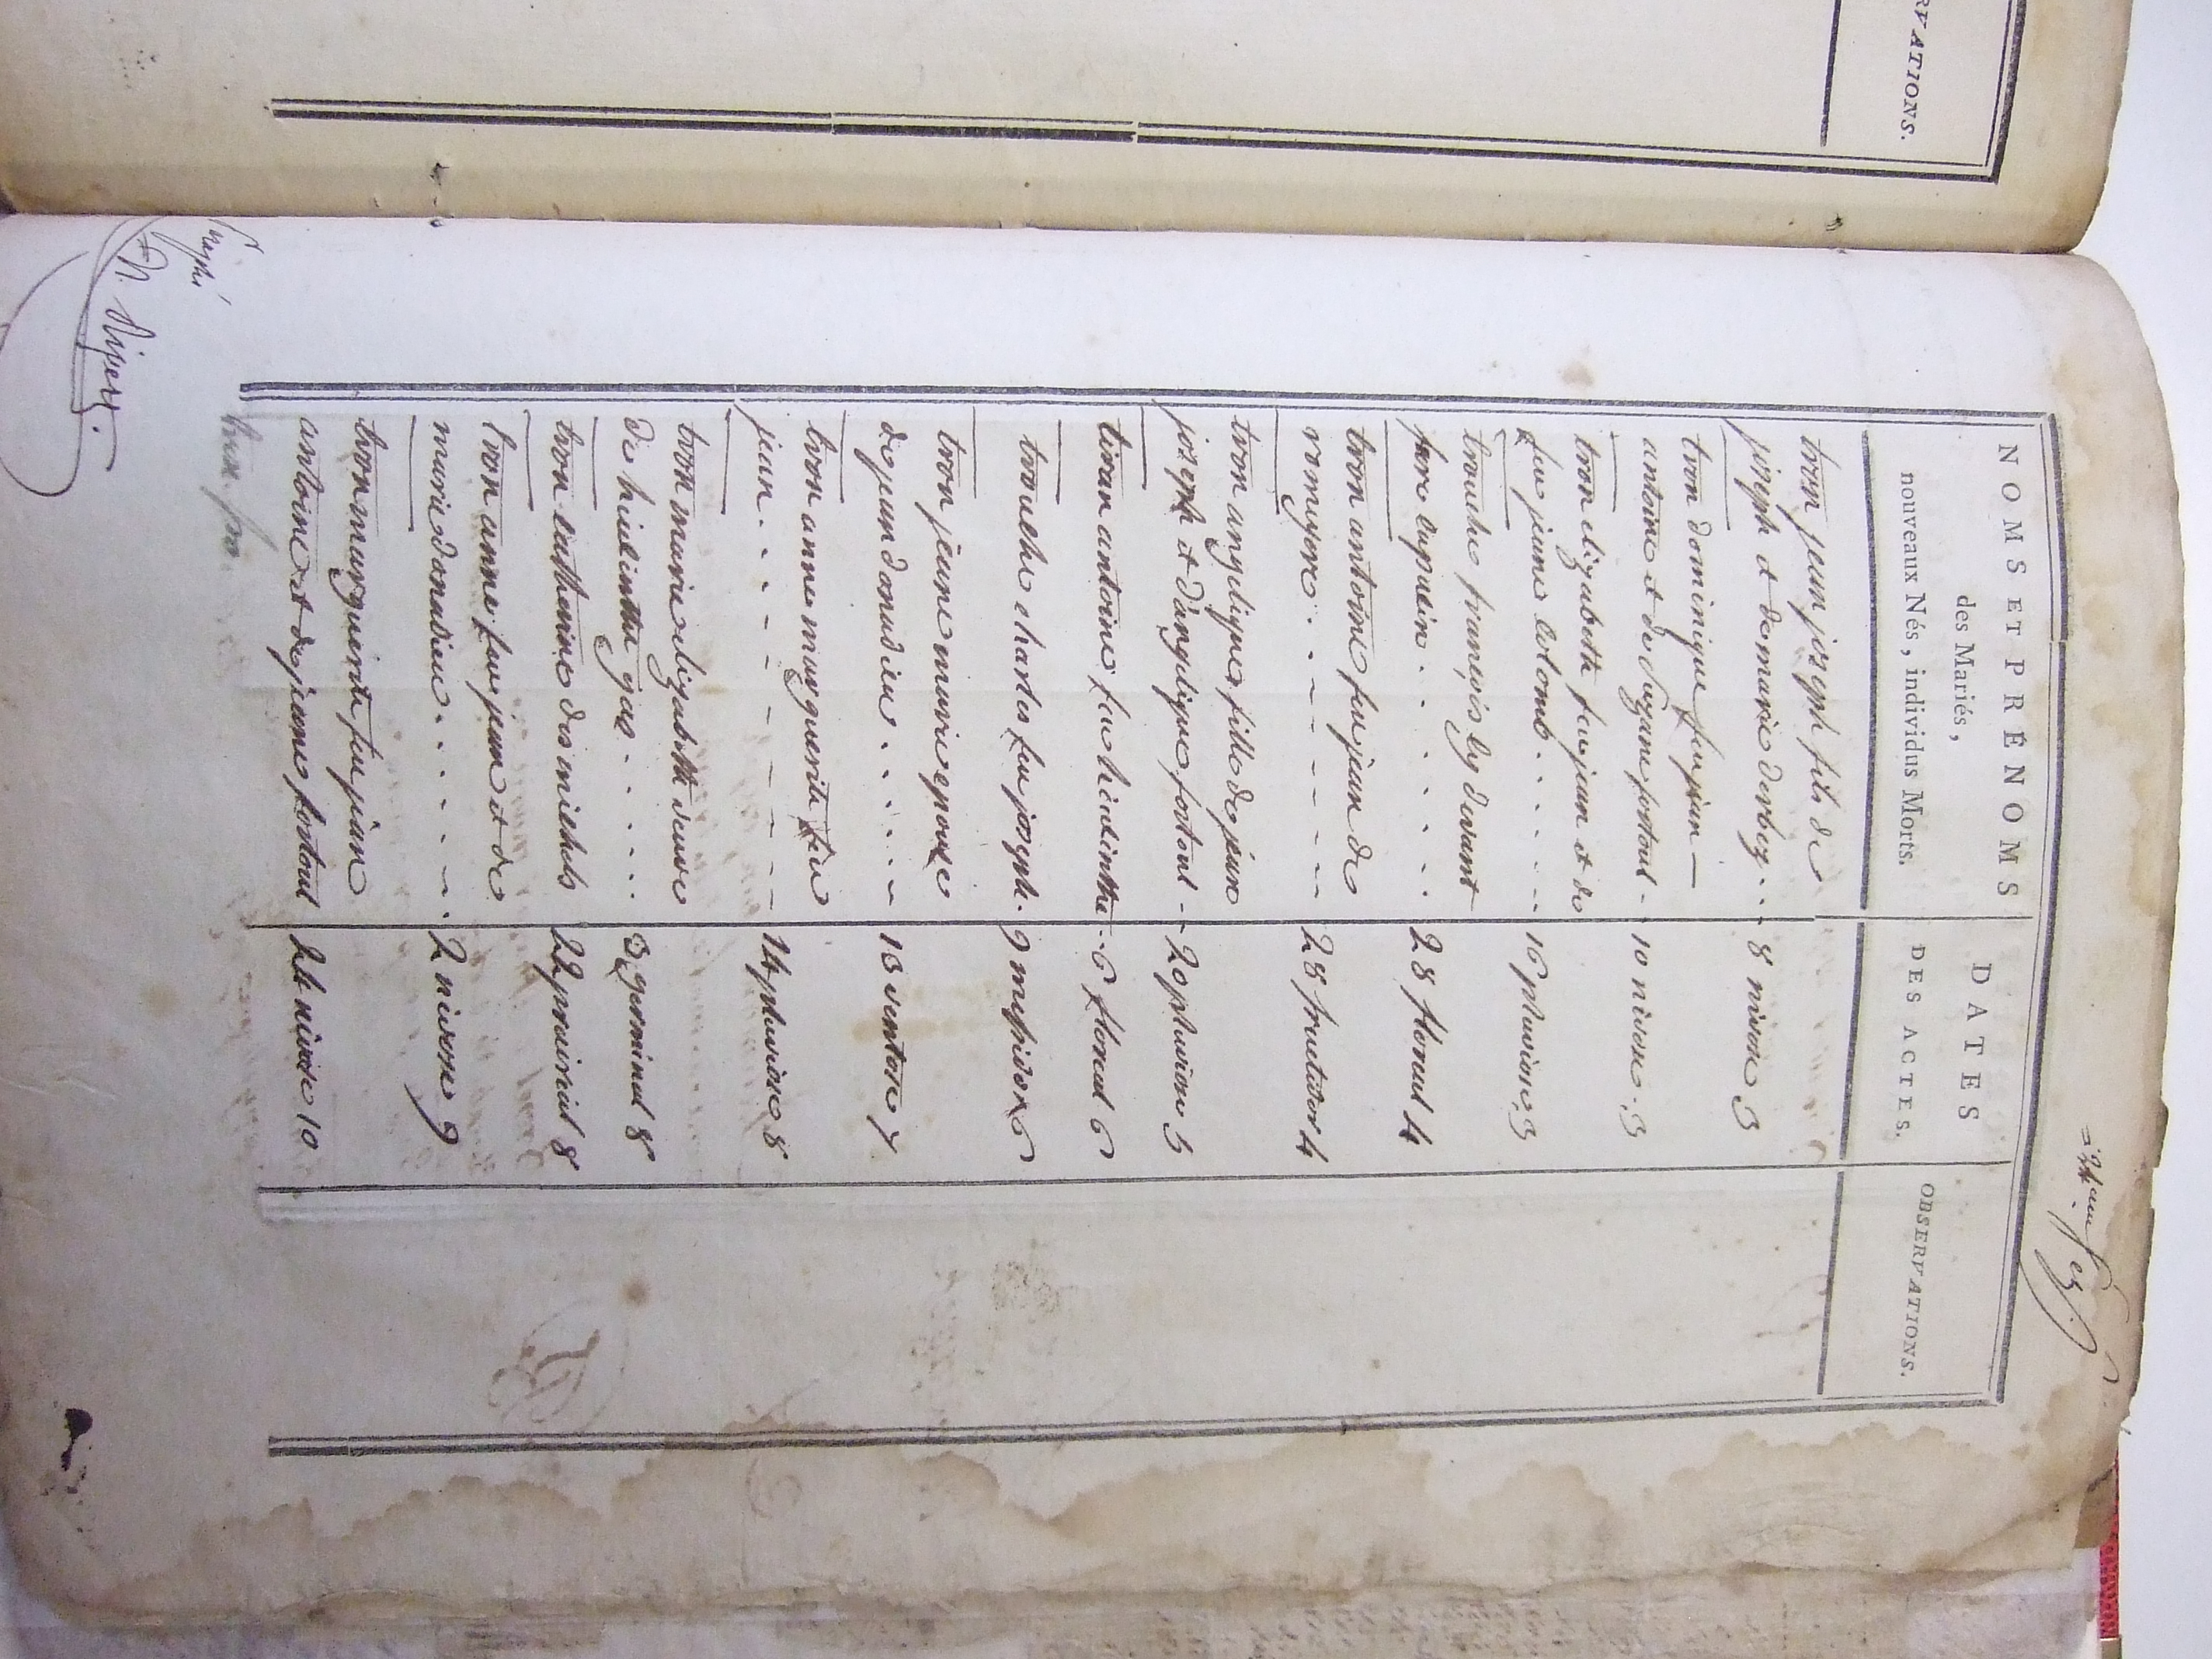 RVATIONS.
24eme
NOMS ET PRÉNOMS
des Mariés,
nouveaux Nés, individus Morts.
DATES
DES ACTES.
OBSERVATIONS.
tron jean joseph fils de
joseph et de marie derbez . . - 8 nivose 3
tron dominique feu jean —
antoine et de suzane fortoul - 10 nivose . 3
tron elizabeth feu jean et de
feu jeanne colomb . . . . - - 16 pluviose . 3
trouche françois cy devant
frere capucin . . . . . . . 28 floreal 4
tron antoine feu jean de
romeyere . . - - - - - - 28 fructidor 4
tron angelique fille de jean
joseph et d'angelique fortoul - - 20 pluviose 5
tiran antoine feu hiacinthe . . 6 floreal 6
trouche charles feu joseph . 9 messidor 6
tron jeanne marie epouse
de jean donadieu . . . . . - 13 ventose 7
tron anne marguerite feu
jean . . . - - - - - - - 14 pluviose 8
tron marie elizabeth veuve
de hiacinthe jac . . . . . 3 germinal 8
tron catherine des michels 22 prairial 8
tron anne feu jean et de
marie donadieu . . . - - - . 2 nivose 9
tron marguerite feu jean
antoine et de jeanne fortoul 24 nivose 10